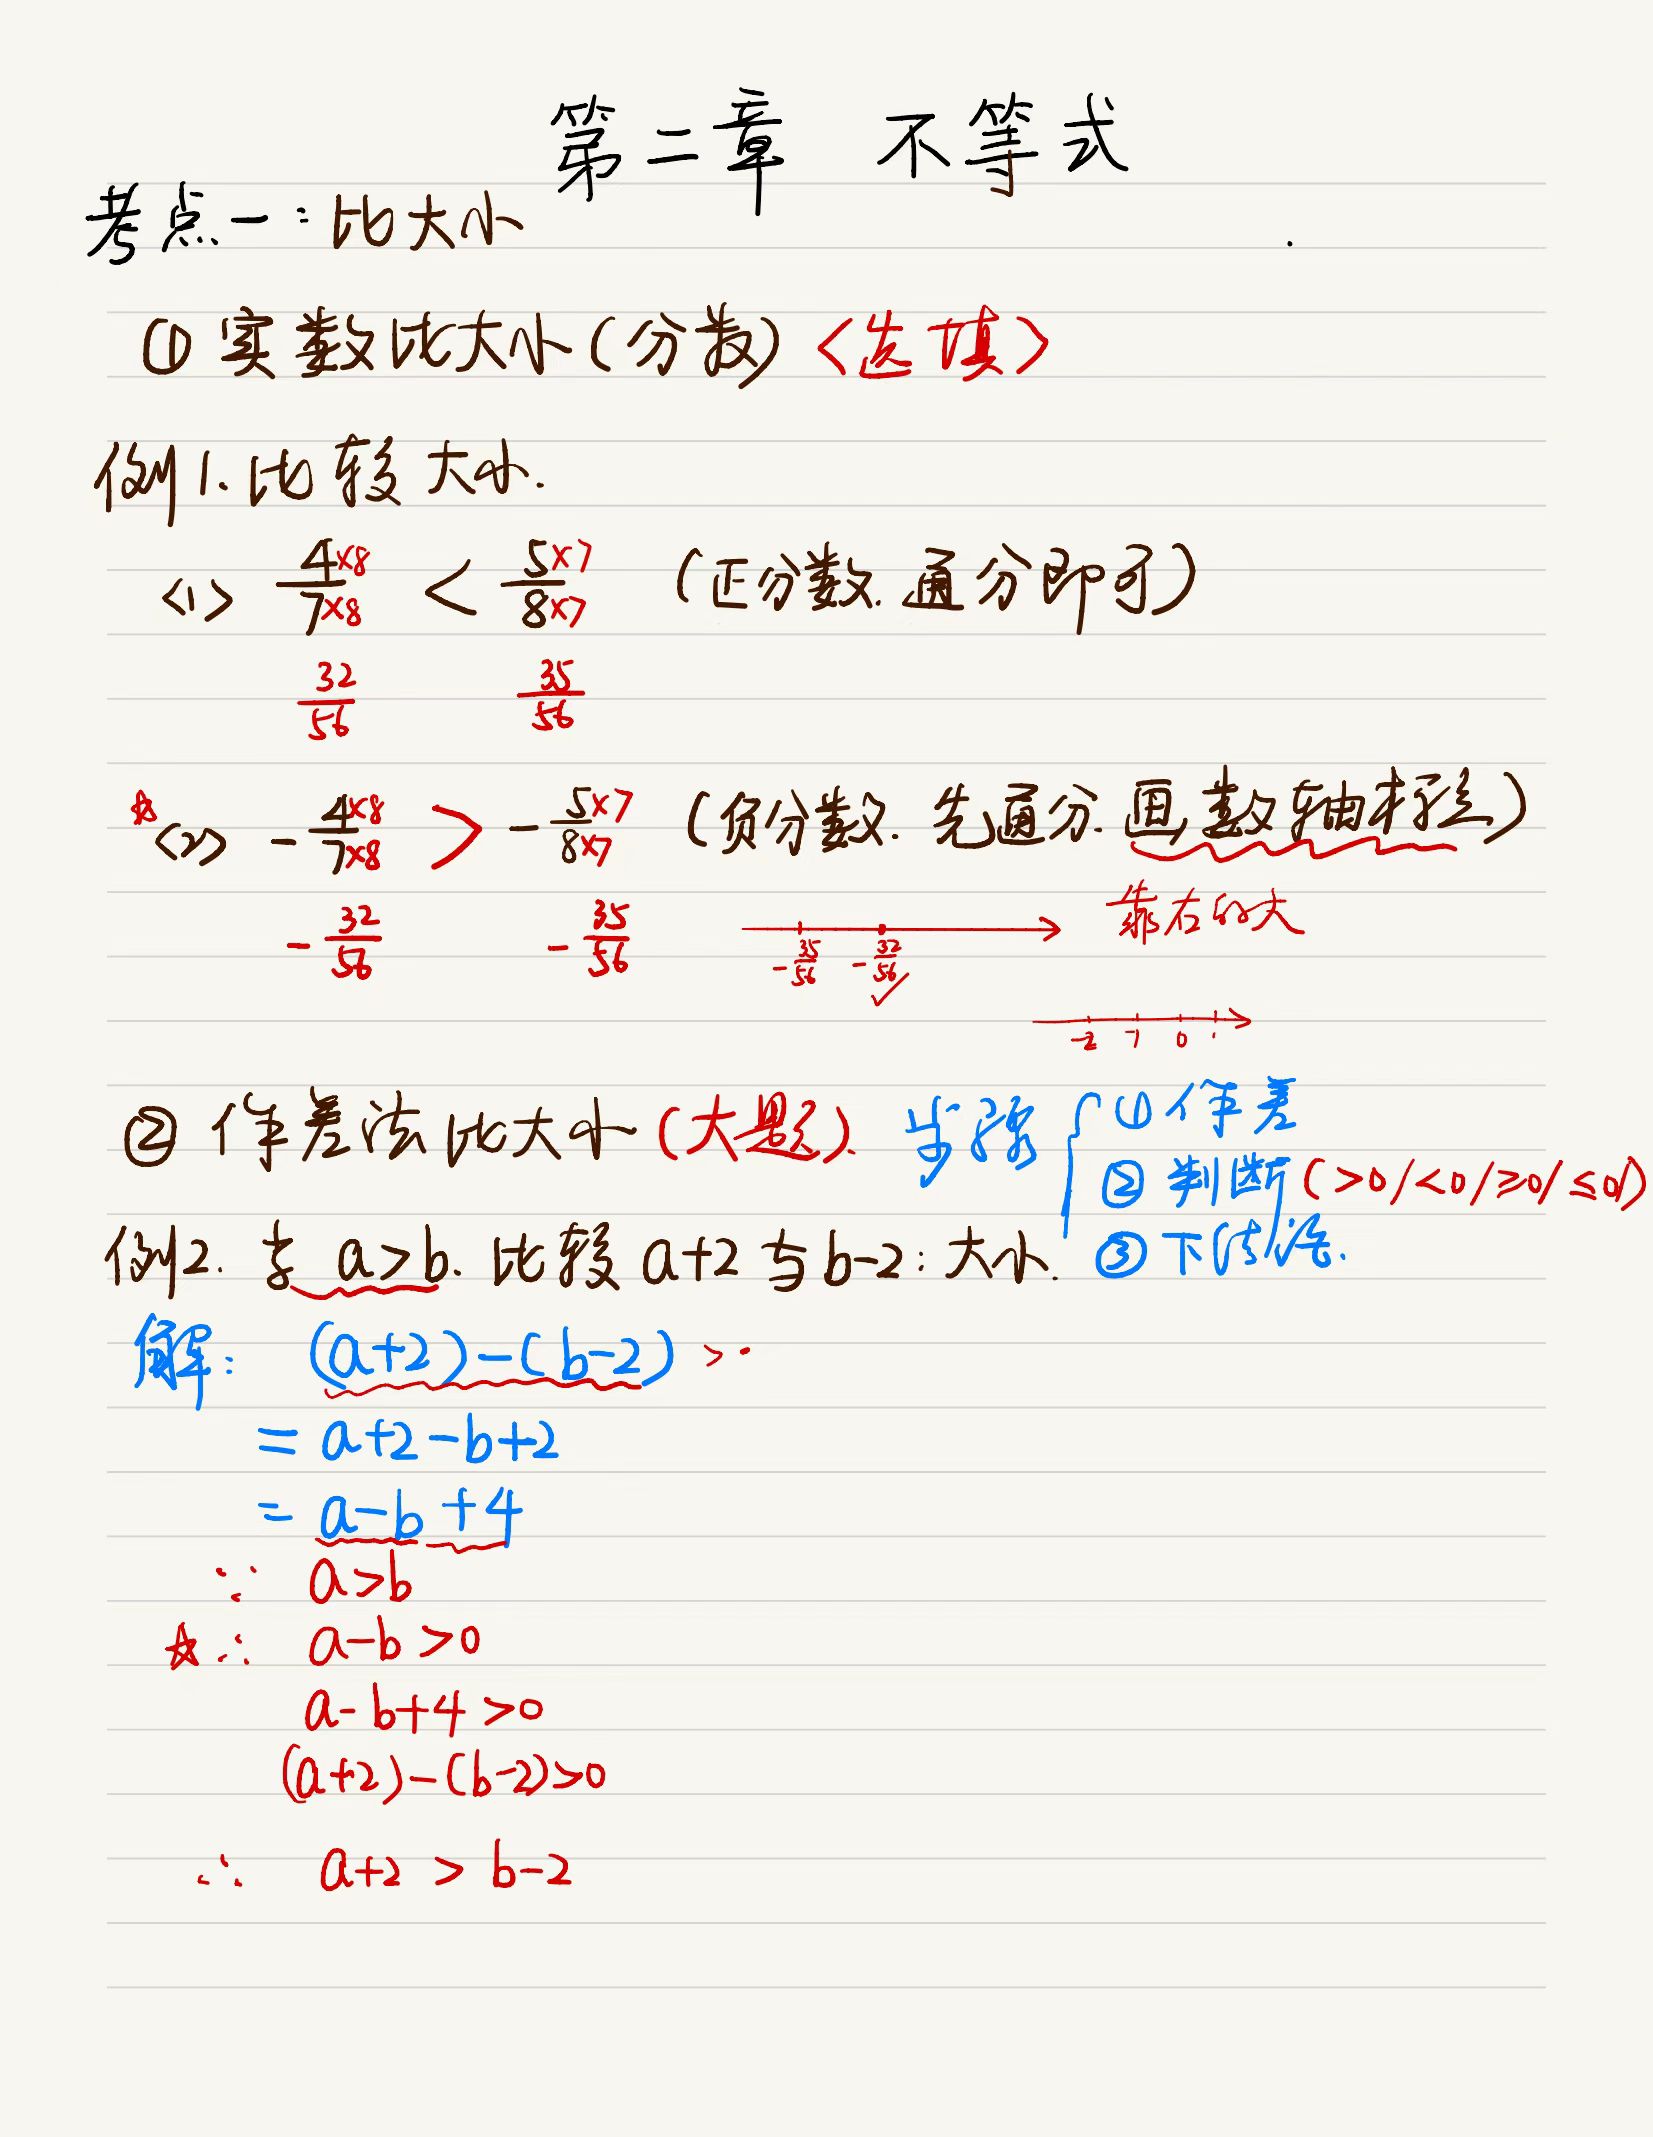 第二章 不等式
考点一:比大小
① 实数比大小(分数)<选填>
例1.比较大小.
<1> 4×8/7×8 < 5×7/8×7 (正分数.通分即可)
32/56 35/56
☆<2> -4×8/7×8 > -5×7/8×7 (负分数.先通分.画数轴标点)
-32/56 -35/56 -35/56 -32/56 ✓ 靠右的大
-2 -1 0 1
② 作差法比大小(大题). 步骤 { ①作差
② 判断(>0/<0/≥0/≤0)
③ 下结论.
例2. 若 a>b. 比较 a+2 与 b-2:大小.
解: (a+2)-(b-2) >
= a+2-b+2
= a-b+4
∵ a>b
☆∴ a-b>0
a-b+4>0
(a+2)-(b-2)>0
∴ a+2 > b-2